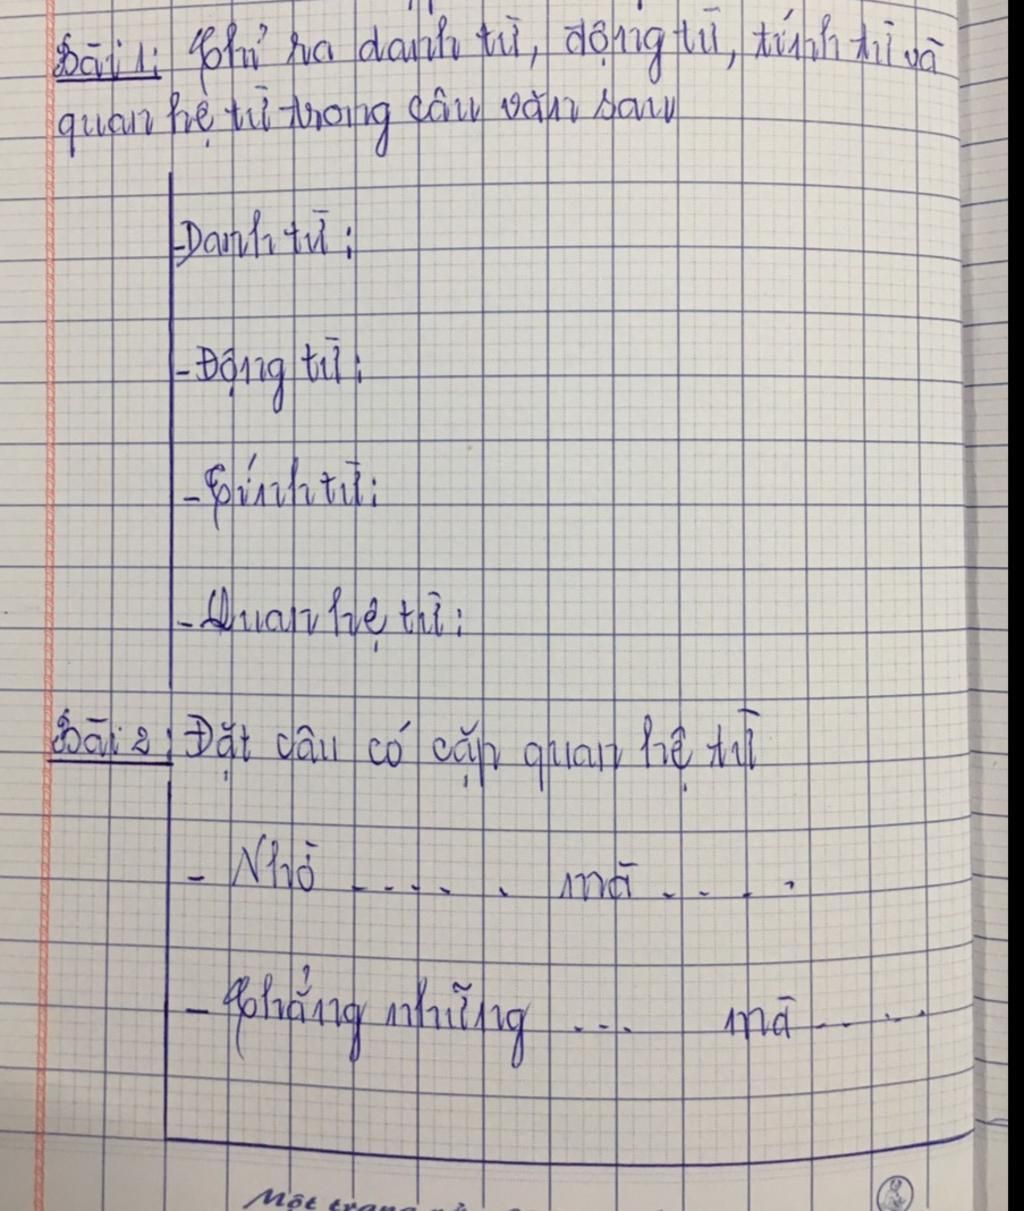 Bài 1: Chỉ ra danh từ, động từ, tính từ và
quan hệ từ trong câu văn sau
-Danh từ:
-Động từ:
-Tính từ:
-Quan hệ từ:
Bài 2: Đặt câu có cặp quan hệ từ
- Nhờ ..... mà ....
- Chẳng những ... mà .....
Một trang